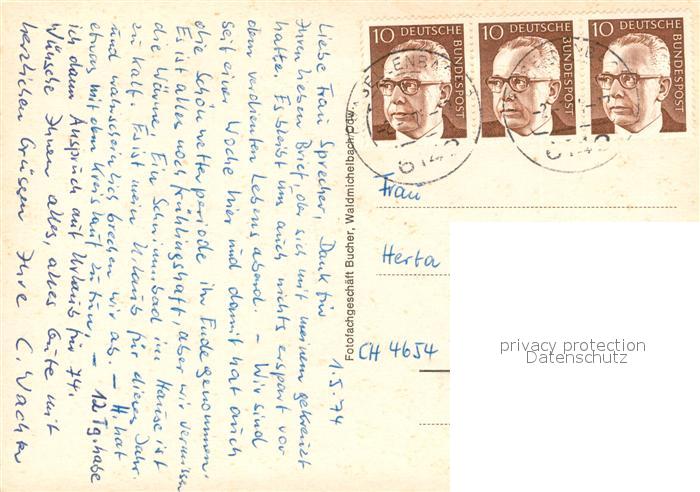 1.5.74
Liebe Frau Sprecher, Dank für
Ihren lieben Brief, der sich mit meinem gekreuzt
hatte. Es bleibt uns auch nichts erspart vor
dem verdienten Lebensabend. – Wir sind
seit einer Woche hier und damit hat auch
die Schönwetterperiode ihr Ende genommen.
Es ist alles noch frühlingshaft, aber wir vermissen
die Wärme. Ein Schwimmbad im Hause ist
zu kalt. Es ist mein Urlaub für dieses Jahr.
und wahrscheinlich brechen wir ab. – H. hat
etwas mit dem Kreislauf zu tun. – 12 Tg. habe
ich dann Anspruch auf Urlaub für 74.
Wünsche Ihnen alles, alles Gute mit
herzlichen Grüssen Ihre C. Wachter
Fotofachgeschäft Bucher, Waldmichelbach/Odw.
10 DEUTSCHE BUNDESPOST
10 DEUTSCHE BUNDESPOST
10 DEUTSCHE BUNDESPOST
Frau
Herta
CH 4654
privacy protection
Datenschutz